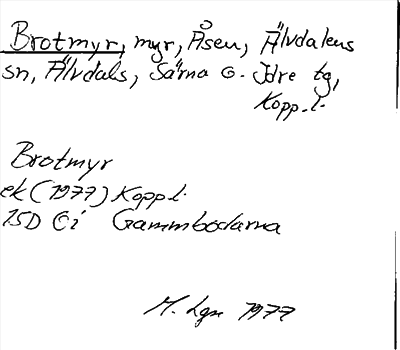 Brotmyr, myr, Åsen, Älvdalens
sn, Älvdals, Särna o. Idre tg,
Kopp. l.
Brotmyr
ek (1977) Kopp l.
15D Ci Gammbodarna
M. Lgn 1977